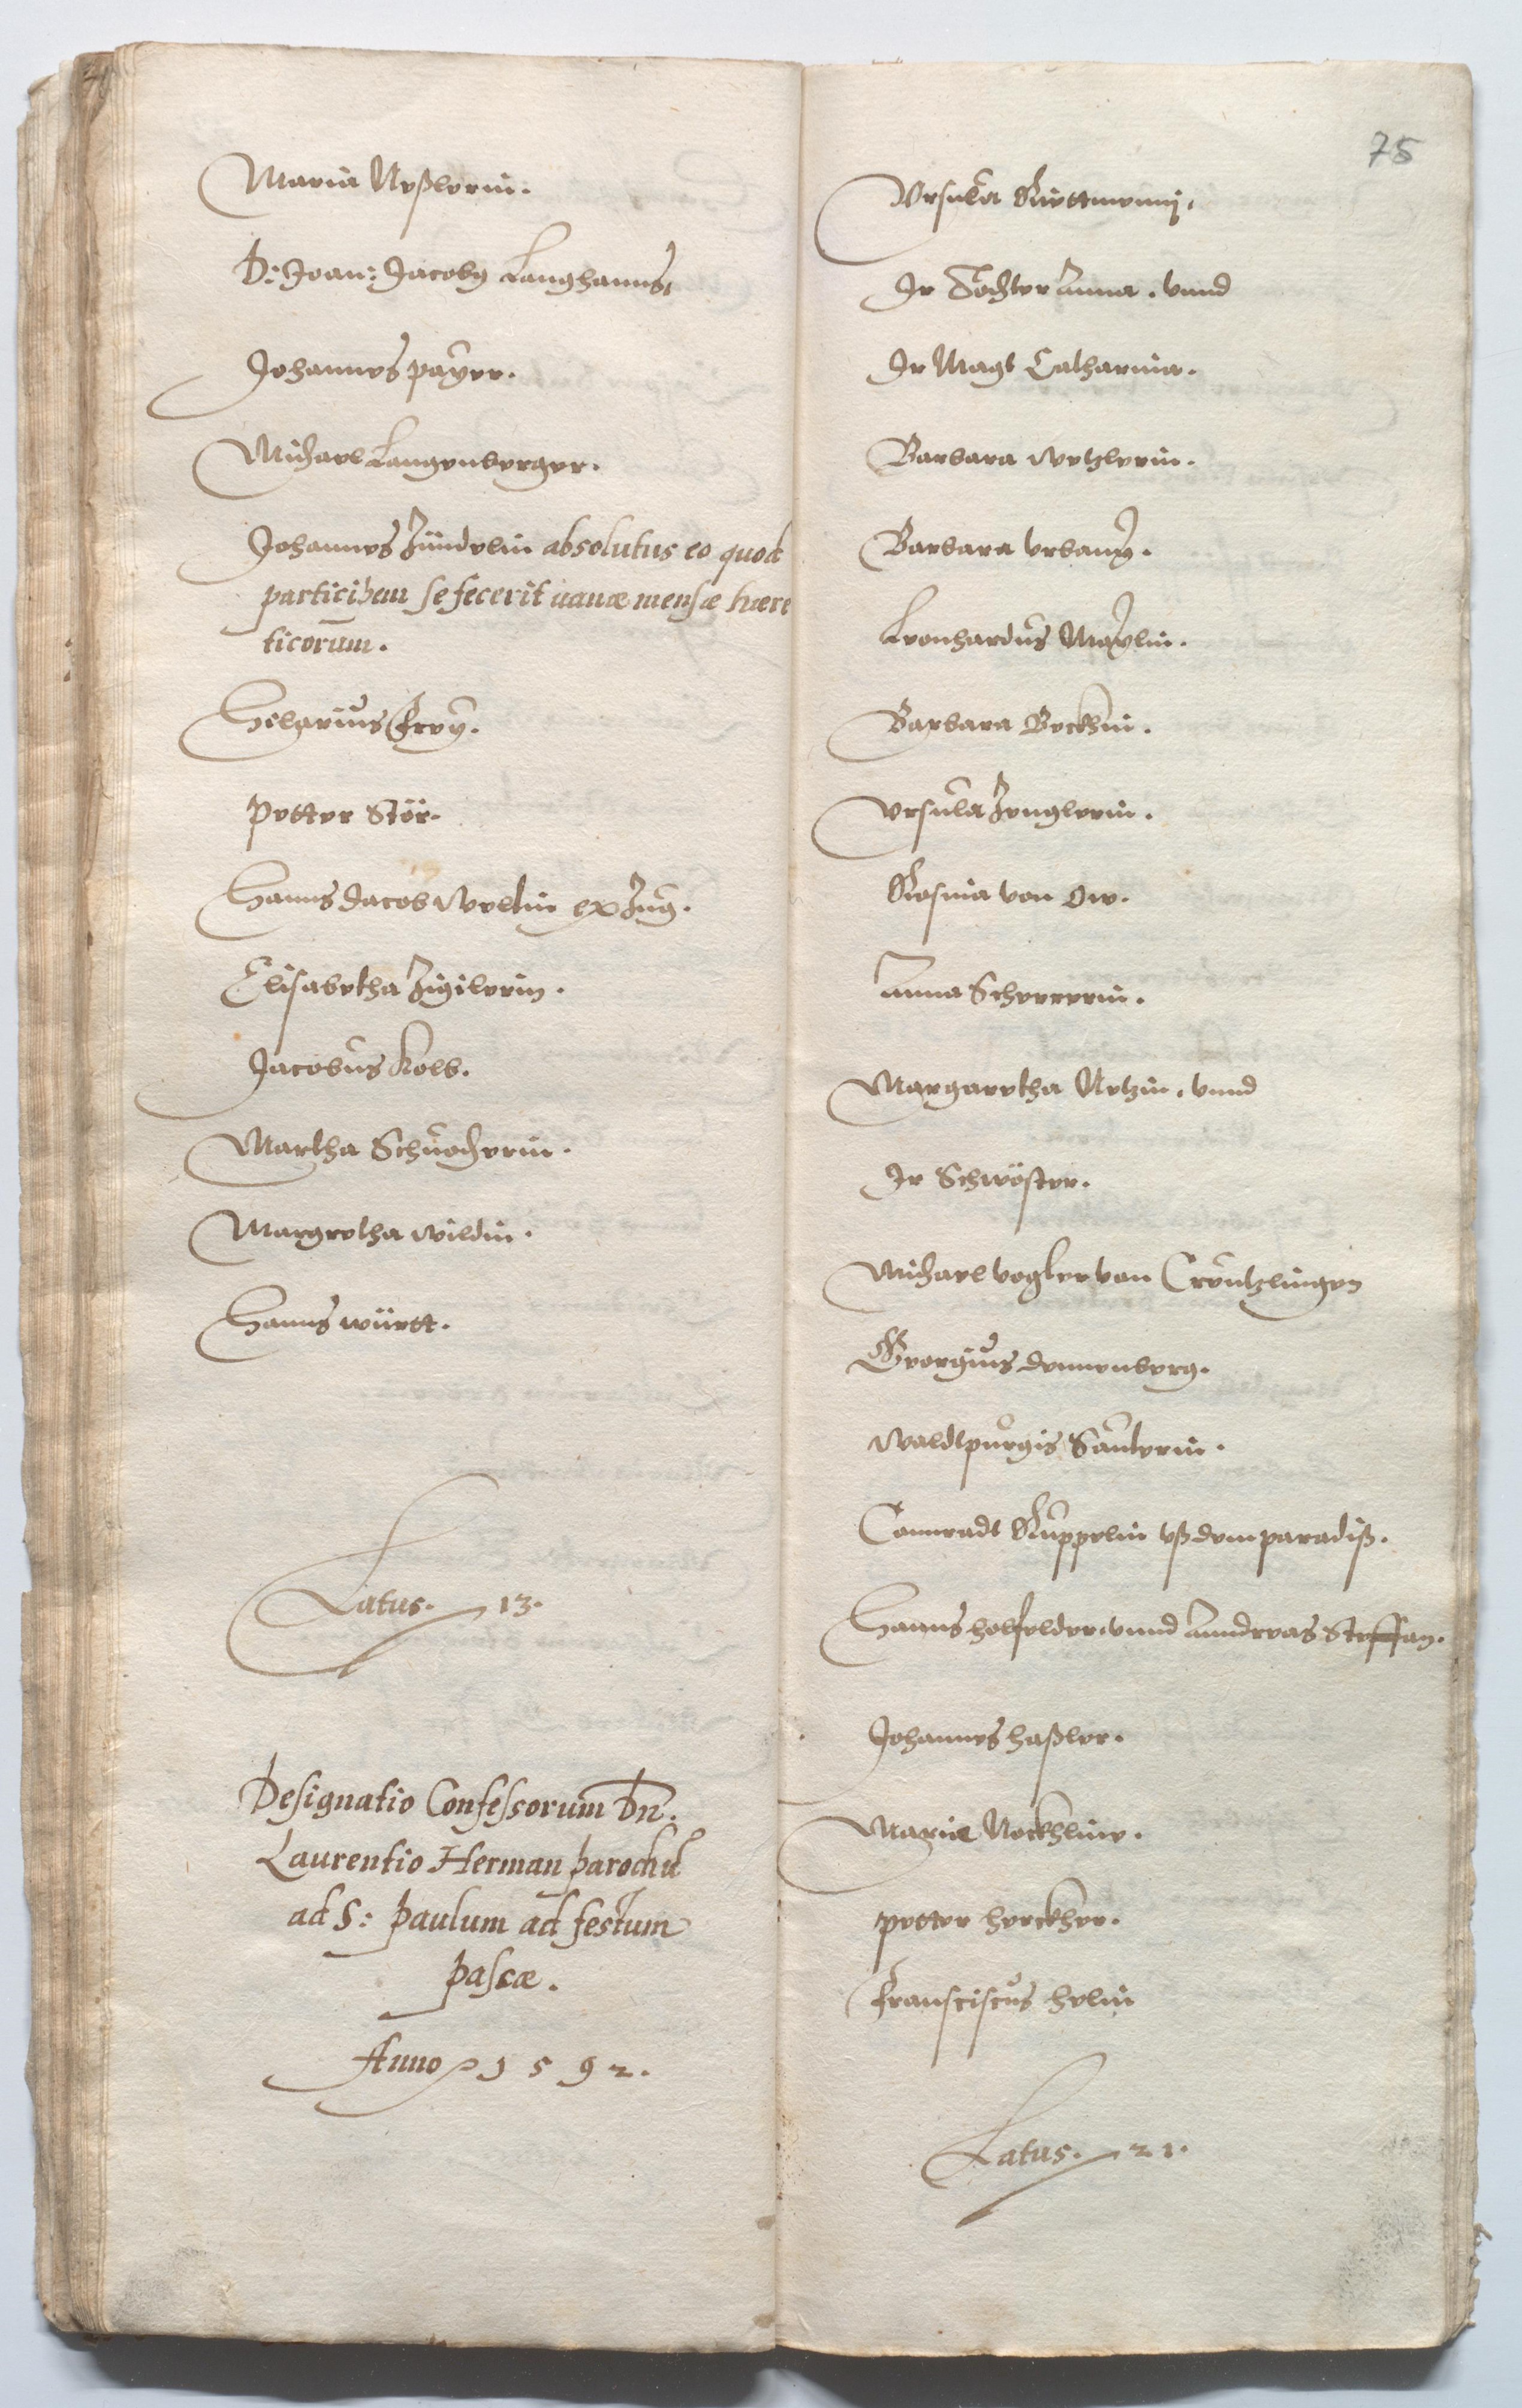 Maria Neßlerin.
D: Joan: Jacoby Langhanns,
Johannes payer.
Michael Langenberger.
Johannes Zündelin absolutus eo quod
participem se fecerit uanæ mensæ hære
ticorum.
Hilarius Frey.
Petter Stör.
Hanns Jacob Wellin ex Zug.
Elisabetha Zigilerin.
Jacobus Kolb.
Martha Schuocherin.
Margretha Wildin.
Hanns Württ.
Latus. 13.
Designatio Confessorum Dn.
Laurentio Herman parochu
ad S: Paulum ad festum
pascæ.
Anno 1592.
75
Vrsula
Ir Tochter Anna. vnnd
Ir Magt Catharina.
Barbara Wetzlerin.
Barbara Vrbany.
Leonhardus Maylin.
Barbara Beckhin.
Vrsula Zenglerin.
Rosina von Ow.
Anna Schererin.
Margaretha Netzin. vnnd
Ir Schwöster.
Michael Vogler von Creutzlingen
Georgius Dennenberg.
Waldtpurgis Sauterin.
Connradt Ruppelin vß dem paradiß.
Hanns holfelder. vnnd Anndreas Steffan.
Johannes Haßler.
Maria Nockhlin.
petter herckher.
Fransciscus helin
Latus. 21.